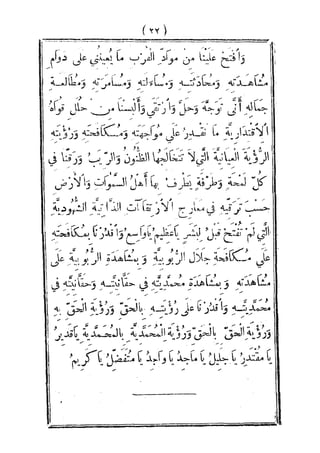 (٢٢)
وَٱفْتَحْ عَلَيْنَا مِنْ مَوَادِّ الْقُرْبِ مَا يُعِينُنِي عَلَى دَوَامِ
مُشَاهَدَتِهِ وَمُحَادَثَتِهِ وَمُسَاءَلَتِهِ وَمُسَامَرَتِهِ وَمُطَالَعَةِ
جَمَالِهِ أَنَّى تَوَجَّهَ وَحَلَّ وَٱرْتَقَى وَأَلْبِسْنَا مِنْ حُلَلِ قُوَاهُ
الْأَقْتِدَارِيَّةِ مَا نَقْدِرُ عَلَى مُوَاجَهَتِهِ وَمُكَافَحَتِهِ وَرُؤْيَتِهِ
الرُّؤْيَةَ الْعِيَانِيَّةَ الَّتِي لَا تُخَالِجُهَا الظُّنُونُ وَالرِّيَبُ وَرَقِّنَا فِي
كُلِّ لَمْحَةٍ وَطَرْفَةٍ يَطْرِفُ بِهَا أَهْلُ السَّمَوَاتِ وَالْأَرْضِ
حَسَبَ تَرَقِّيهِ فِي مَعَارِجِ الْأَرْتِقَاآتِ الذَّاتِيَّةِ الشُّهُودِيَّةِ
الَّتِي لَمْ تُفْتَحْ قَبْلُ لِبَشَرٍ يَاعَظِيمُ يَاوَاسِعُ وَٱقْدُرْنَا بِمُكَافَحَتِهِ
عَلَى مُكَافَحَةِ جَلَالِ الرُّبُوبِيَّةِ وَبِمُشَاهَدَةِ الرُّبُوبِيَّةِ عَلَى
مُشَاهَدَتِهِ وَبِمُشَاهَدَةِ مُحَمَّدِيَّتِهِ فِي حَقَّانِيَّتِهِ وَحَقَّانِيَّتِهِ فِي
مُحَمَّدِيَّتِهِ وَٱقْدُرْنَا عَلَى رُؤْيَتِهِ بِالْحَقِّ وَرُؤْيَةِ الْحَقِّ بِهِ
وَرُؤْيَةِ الْحَقِّ بِالْحَقِّ وَرُؤْيَةِ الْمُحَمَّدِيَّةِ بِالْمُحَمَّدِيَّةِ يَاقَدِيرُ
يَا مُقْتَدِرُ يَا جَلِيلُ يَا مَاجِدُ يَا وَاجِدُ يَا مُتَفَضِّلُ يَا كَرِيمُ